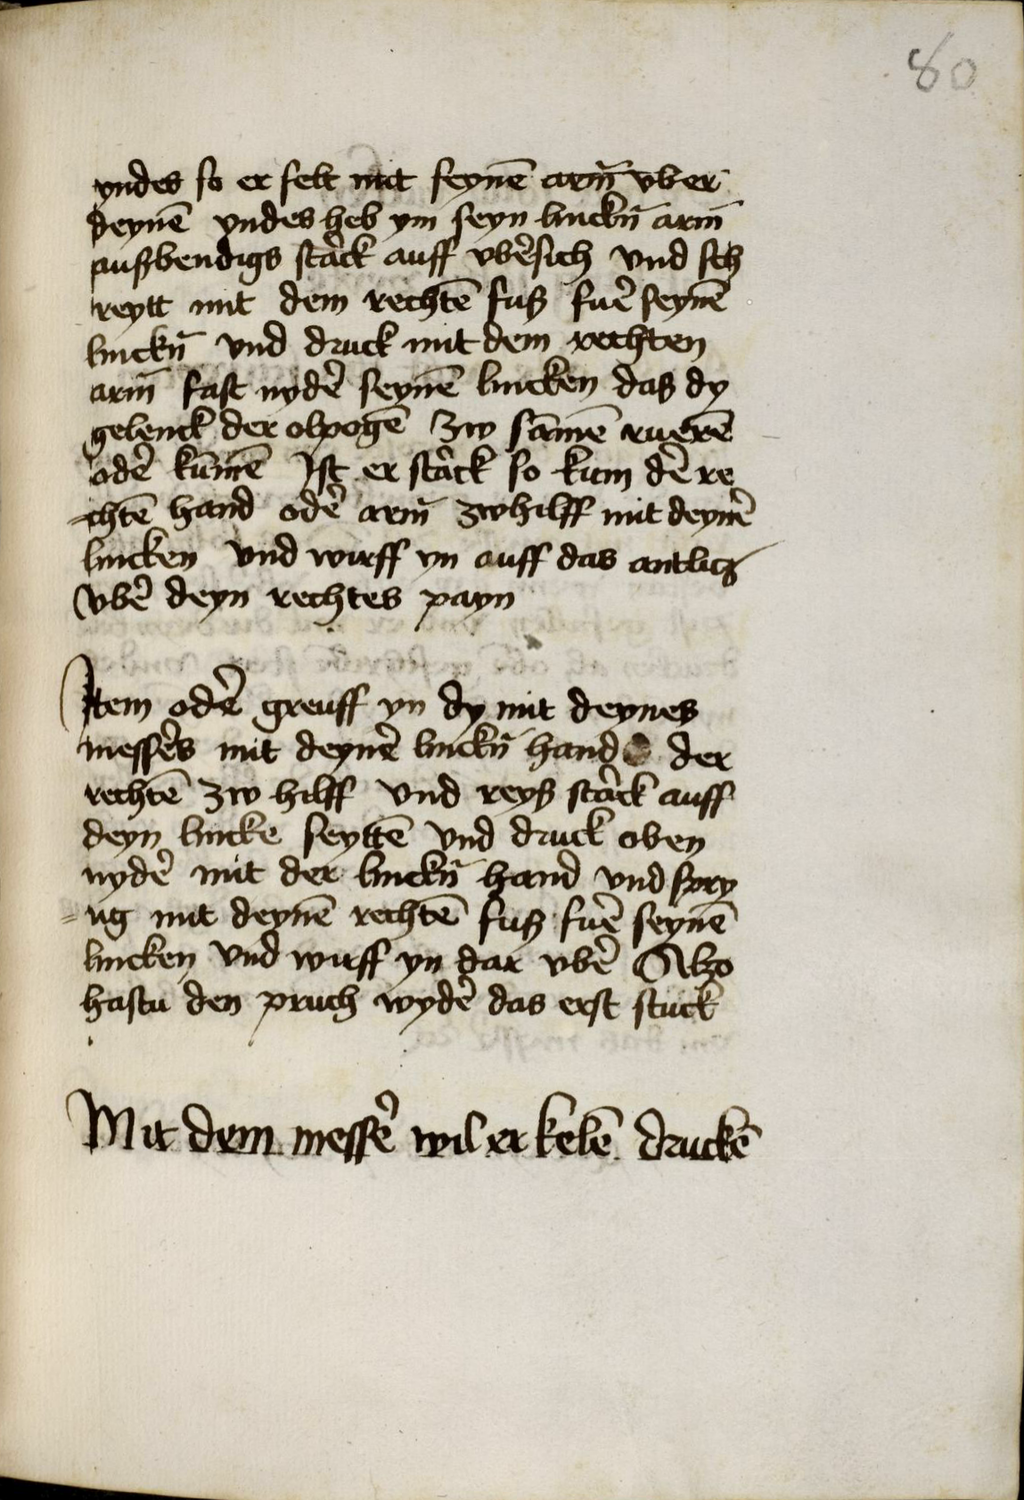 80
yndes so er felt mit seynē arm̄ vber
deynē yndes heb ym seyn linckn̄ arm̄
außbendigs starck auff vbẽsich vnd sch
reytt mit dem rechtē fuß fuẽ seynē
linckn̄ vnd druck mit dem rechten
arm̄ fast nydẽ seynē lincken das dy
gelenck der olpogē zw sāmē ruerē
odẽ kūmē Ist er starck so kum dẽ re
-chtē hand odẽ arm̄ zwhilff mit deynẽ
lincken vnd wirff yn auff das antlicz
vbẽ deyn rechtes payn
Item odẽ greuff yn dy mit deynes
messẽs mit deynẽ linckn̄ hand der
rechtē zw hilff vnd reyß starck auff
deyn lincke seyttē vnd druck oben
nydẽ mit der linckn̄ hand vnd spry
=ng mit deynē rechtē fuß fuẽ seynē
lincken vnd wirff yn dar vbẽ Also
hastu den pruch wydẽ das erst stuck
Mit dem messẽ wil er kelē druckē